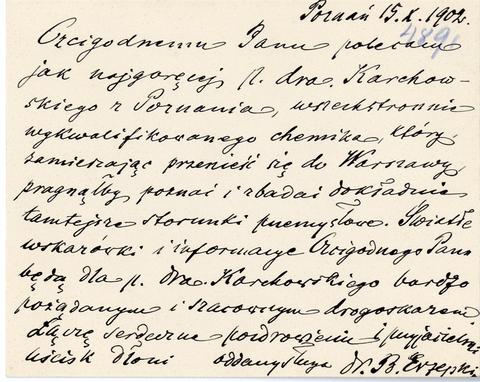 Poznań 15.X.1902.
489
Czcigodnemu Panu polecam
jak najgoręcej p. dra. Karchow-
skiego z Poznania, wszechstronnie
wykwalifikowanego chemika, który,
zamierzając przenieść się do Warszawy,
pragnąłby poznać i zbadać dokładnie
tamtejsze stosunki przemysłowe. Światłe
wskazówki i informacye Czcigodnego Pana
będą dla p. dra. Karchowskiego bardzo
pożądanym i szacownym drogoskazem
Łączę serdeczne pozdrowienie i przyjacielski
uścisk dłoni oddany służa dr. B. Erzepki